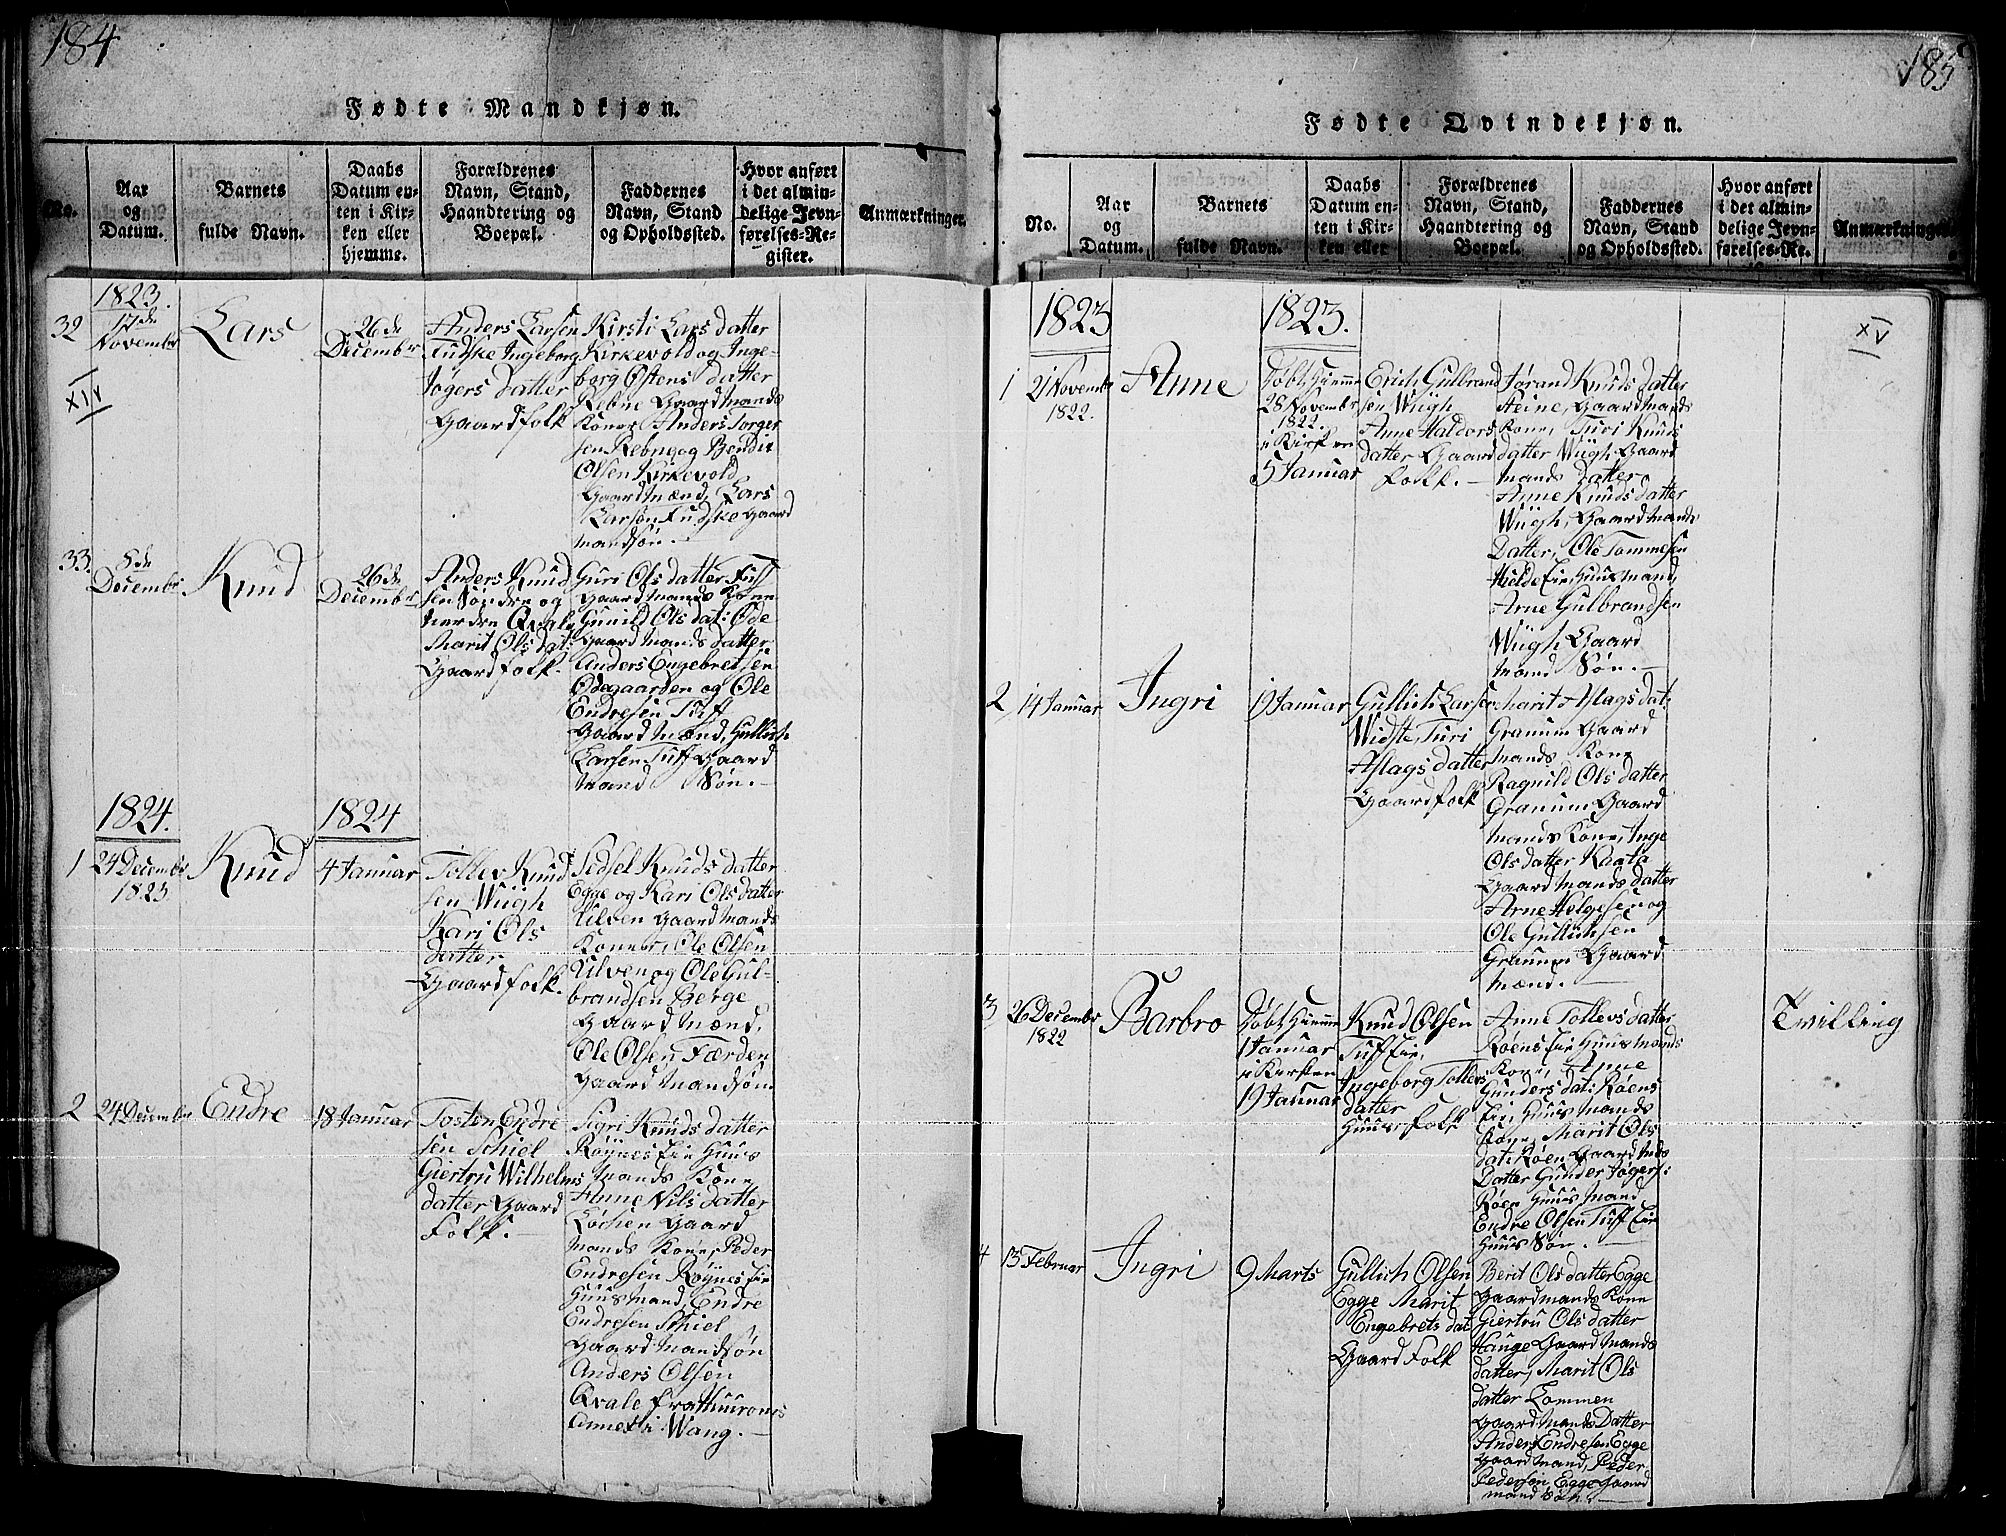 184
Fødte Mandkjøn.
No.
Aar
og
Datum.
Barnets
fulde Navn.
Daabs
Datum en-
ten i Kir-
ken eller
hjemme.
Forældrenes
Navn, Stand,
Haandtering og
Boepæl.
Faddernes
Navn, Stand
og Opholdssted.
Hvor anført
i det almin-
delige Jevn-
førelses-Re-
gister.
Anmærkninger.
1823.
32
17de
Novembr
Lars
26de
Decembr
Anders Larsen
Fudske Ingeborg
Jøgers datter
Gaardfolk
Kirsti Lars datter
Kirkevold og Inge-
borg Østens datter
Rebne Gaardmands
Koner Anders Torger
sen Rebne og Bendit
Olsen Kirkevold
Gaardmænd, Lars
Larsen Fudske Gaard
mandsøn.
XIV
33.
8de
Decembr.
Knud
26de
Decembr
Anders Knud
sen Søndre og
nerdre Qvale
Marit Ols dat:
Gaardfolk.
Guri Ols datter Tuff
Gaardmands Kone
Gunild Ols dat: Øde
Gaardmands datter
Anders Engebretsen
Ødegaarden og Ole
Endresen Tuff
Gaardmænd, Gullich
Larsen Tuff Gaard
mand Søn.
1824.
1824
1
24 Decembr
1823
Knud
4 Januar
Tollev Knud
sen Wiigh
Kari Ols
datter
Gaardfolk.
Sidsel Knuds datter
Egge og Kari Ols datter
Ulven Gaardmands
Koner, Ole Olsen
Ulven og Ole Gul-
brandsen Berge
Gaardmænd,
Ole Olsen Færden
Gaardmandsøn
2
24 Decembr
Endre
18 Januar
Tosten Endre
sen Schiel
Giertru Wilhelms
datter Gaard
Folk.
Sigri Knuds datter
Røynes Eie Huus
mands Kone
Anne Nils datter
Løchen Gaard
mands Kone, Peder
Endresen Røynes Eie
Huusmand, Endre
Endresen Schiel
Gaardmandsøn
Anders Olsen
Qvale fra Huurones
Annex i Wang.
185
Fødte Qvindekjøn.
No.
Aar
og
Datum.
Barnets
fulde Navn.
Daabs
Datum en-
ten i Kir-
ken eller
Forældrenes
Navn, Stand,
Haandtering og
Boepæl.
Faddernes
Navn, Stand
og Opholdssted.
Hvor anført
i det almin-
delige Jevn-
førelses-Re-
Anmærkninger
1823
1823.
XV
1
21 Novembr
1822.
Anne
Døbt Hiemme
28 Novembr
1822.
i Kirken
5 Januar
Erich Gulbrand
sen Wiigh
Anne Haldors
datter Gaard
folk.
Jørand Knuds datter
Heine, Gaardmands
Kone, Turi Knuds
datter Wiigh Gaard
mands datter
Anne Knuds datter
Wiigh, Gaardmands
Datter, Ole Tommesen
Helde Eie, Huusmand,
Arne Gulbrandsen
Wiigh Gaard
mand Søn.
2
14 Januar
Ingri
19 Januar
Gullich Larsen
Widste, Turi
Aslags datter
Gaardfolk
Marit Aslags dat:
Granum Gaard
mands Kone
Ragnild Ols datter
Granum Gaard
mands Kone, Inge
Ols datter Kaata
Gaardmands datter
Arne Helgesen og
Ole Gullichsen
Granum Gaard
mænd.
3
26 Decembr
1822
Barbro
Døbt Hiemme
1 Januar
i Kirken
19 Januar
Knud Olsen
Tuff Eie,
Ingeborg Tollevs
datter
Huusfolk
Anne Tollevs datter
Røens Eie Huusmands
Kone, Anne
Gunders dat: Røens
Eie, Huusmands
Kone, Marit Ols
dat: Røen Gaardmds
Datter Gunder Jøgers:
Røen Huusmand
Endre Olsen Tuff Eie
Huus Søn.
Twilling
4
13 Februar
Ingri
9 Marts
Gullich Olsen
Egge Marit
Engebrets dat
Gaard Folk
Berit Ols datter Egge
Gaardmands Kone
Giertru Ols datter
Hauge Gaardmands
datter, Marit Ols
datter Lommen
Gaardmands Datter
Anders Endresen Egge
Gaardmand, Peder
Pedersen Egge Gaard
mand Søn.